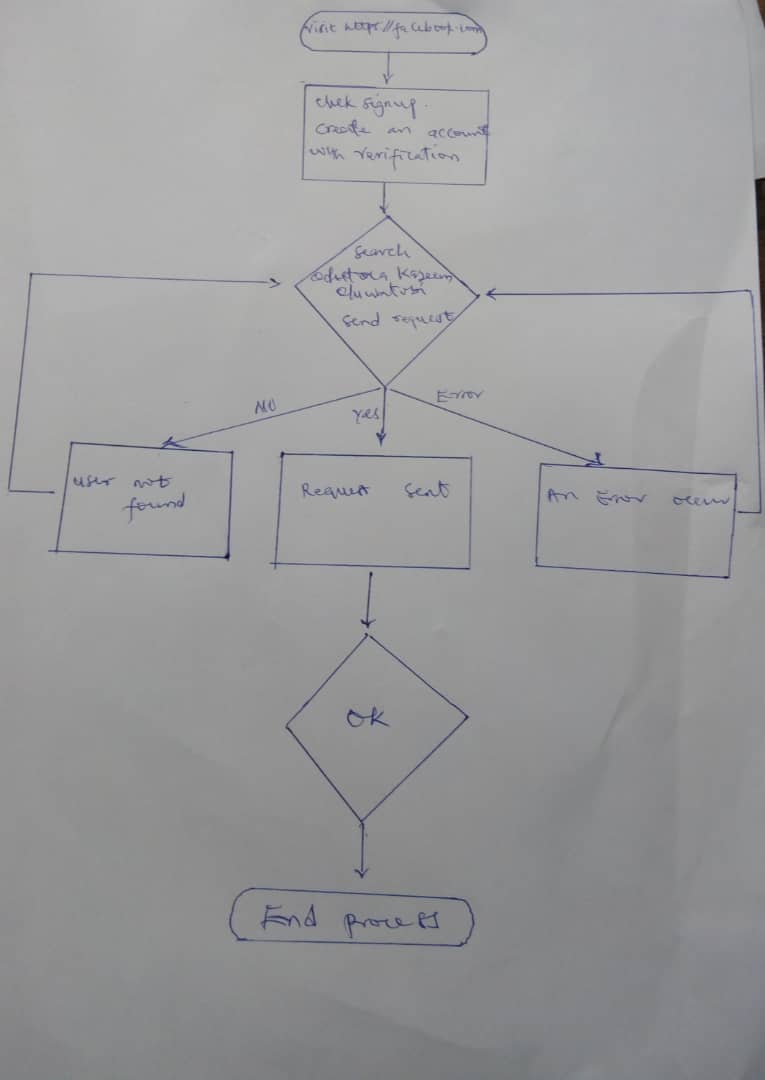 visit https://facebook.com
click signup.
create an account
with verification
search
Kazeem
oluwatosi
send request
NO
Yes
Error
user not
found
Request sent
An Error occur
OK
End process